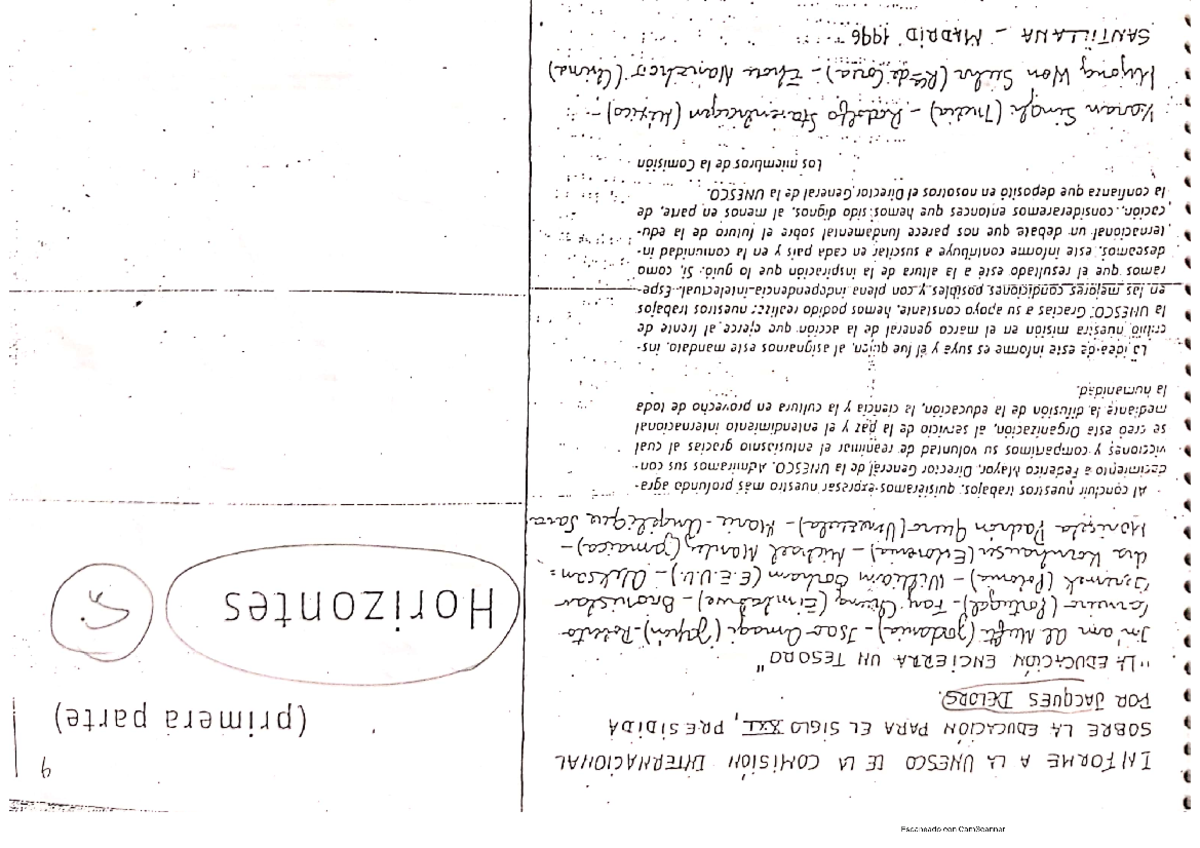 INFORME A LA UNESCO DE LA COMISIÓN INTERNACIONAL
SOBRE LA EDUCACIÓN PARA EL SIGLO XXI, PRESIDIDA
POR JACQUES DELORS.
"LA EDUCACIÓN ENCIERRA UN TESORO"
In'am Al Mufti (Jordania) - Isao Amagi (Japón) - Roberto
Carneiro (Portugal) - Fay Chung (Zimbabwe) - Bronislaw
Geremek (Polonia) - William Gorham (E.E.U.U.) - Aleksan=
dra Kornhauser (Eslovenia) - Michael Manley (Jamaica) -
Marisela Padrón Quero (Venezuela) - Marie-Angélique Sava
Al concluir nuestros trabajos, quisiéramos expresar nuestro más profundo agra-
decimiento a Federico Mayor, Director General de la UNESCO. Admiramos sus con-
vicciones y compartimos su voluntad de reanimar el entusiasmo gracias al cual
se creó esta Organización, al servicio de la paz y el entendimiento internacional
mediante la difusión de la educación, la ciencia y la cultura en provecho de toda
la humanidad.
La idea de este informe es suya y él fue quien, al asignarnos este mandato, ins-
cribió nuestra misión en el marco general de la acción que ejerce al frente de
la UNESCO. Gracias a su apoyo constante, hemos podido realizar nuestros trabajos
en las mejores condiciones posibles y con plena independencia intelectual. Espe-
ramos que el resultado esté a la altura de la inspiración que lo guió. Si, como
deseamos, este informe contribuye a suscitar en cada país y en la comunidad in-
ternacional un debate que nos parece fundamental sobre el futuro de la edu-
cación, consideraremos entonces que hemos sido dignos, al menos en parte, de
la confianza que depositó en nosotros el Director General de la UNESCO.
Los miembros de la Comisión
Karan Singh (India) - Rodolfo Stavenhagen (México) -
Myong Won Suhr (Rca de Corea) - Zhou Nanzhao (China)
SANTILLANA - MADRID 1996
9
(primera parte)
Horizontes
Escaneado con CamScanner